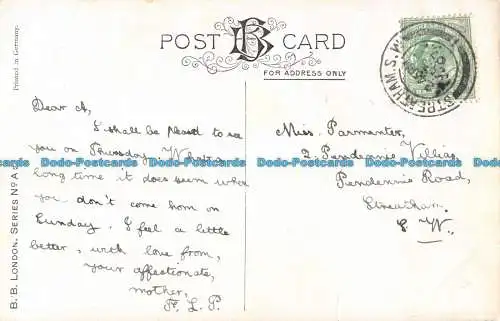 POST BB CARD
FOR ADDRESS ONLY
Printed in Germany.
B. B. LONDON. SERIES Nº A
STREATHAM. S.W.
Dear A,
I shall be pleased to see
you on Thursday. W
long time it does seem when
you don't come home on
Sunday. I feel a little
better, with love from,
your affectionate,
mother,
F. L. P.
Miss. Parmenter,
2 Pendennis Villas
Pendennis Road,
Streatham.
S. W.
Dodo-Postcards Dodo-Postcards Dodo-Postcards Dodo-Postcards
Dodo-Postcards Dodo-Postcards Dodo-Postcards Dodo-Postcards